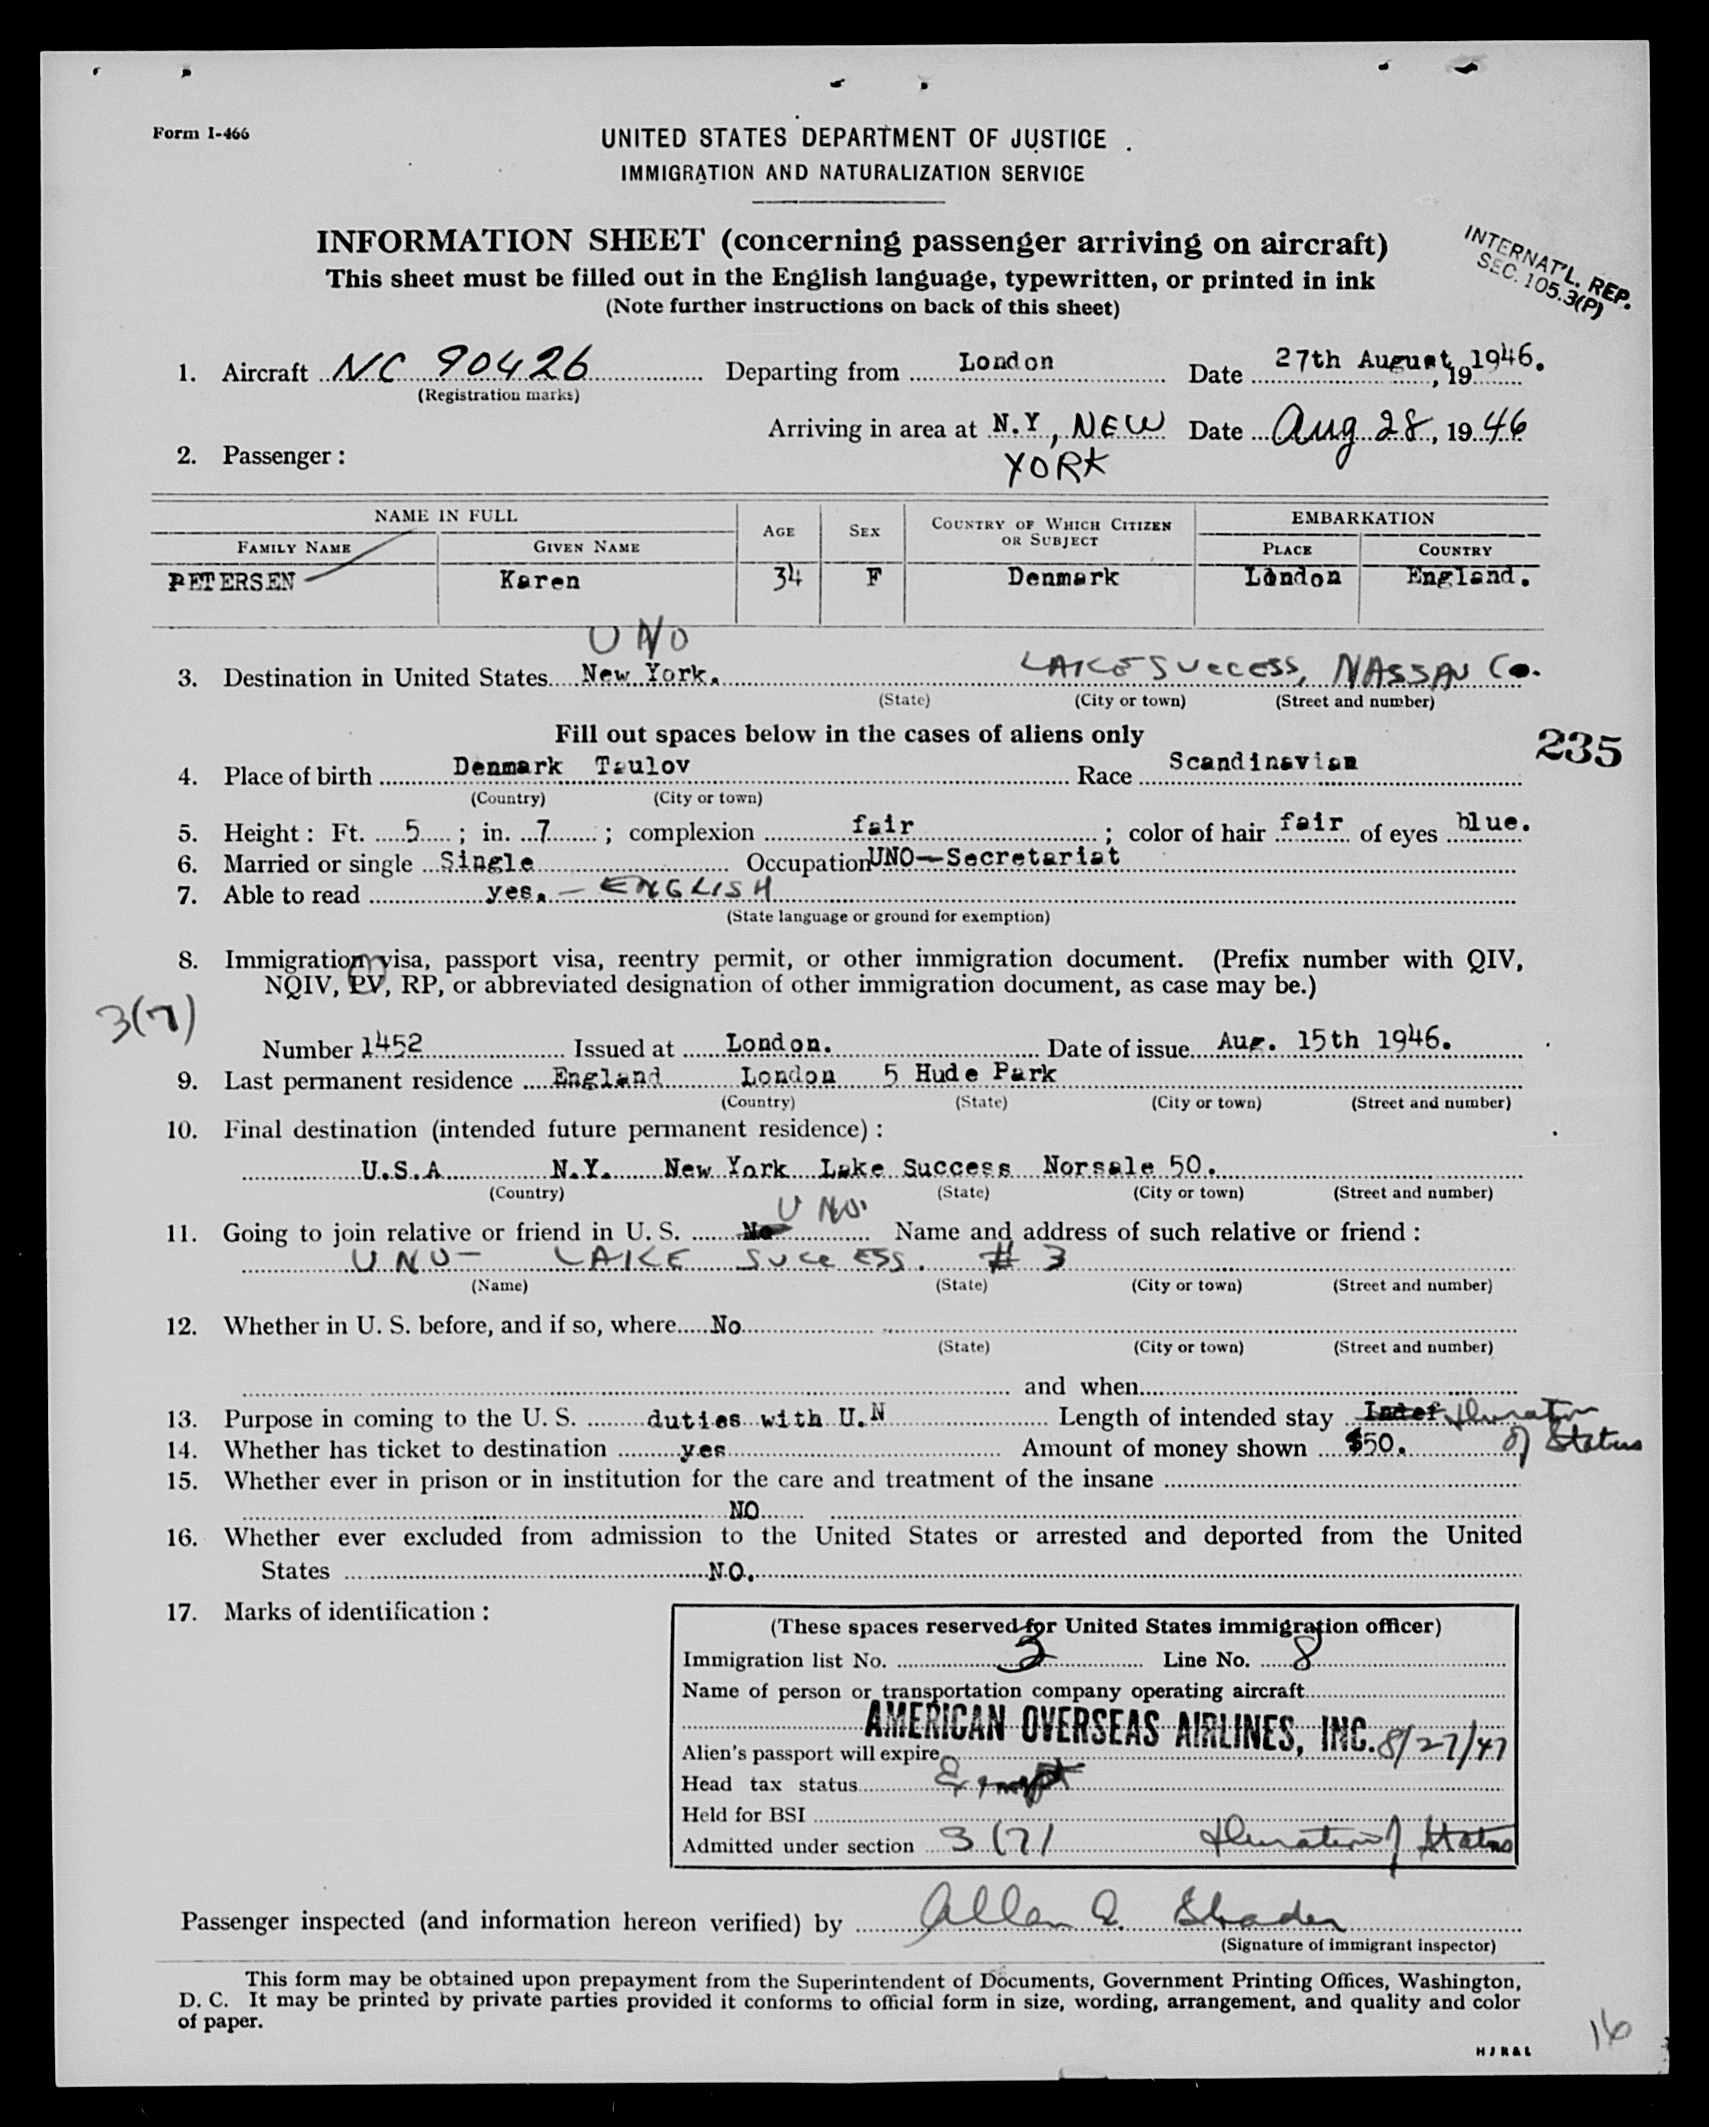 Form I-466
UNITED STATES DEPARTMENT OF JUSTICE
IMMIGRATION AND NATURALIZATION SERVICE
INFORMATION SHEET (concerning passenger arriving on aircraft)
This sheet must be filled out in the English language, typewritten, or printed in ink
(Note further instructions on back of this sheet)
INTERNAT'L. REP.
SEC. 105.3(P)
1. Aircraft NC 90426 Departing from London Date 27th August, 19 1946.
(Registration marks)
Arriving in area at N.Y, NEW YORK Date Aug 28, 19 46
2. Passenger:
NAME IN FULL AGE SEX COUNTRY OF WHICH CITIZEN OR SUBJECT EMBARKATION
FAMILY NAME GIVEN NAME PLACE COUNTRY
PETERSEN Karen 34 F Denmark London England.
UNO
3. Destination in United States New York. LAKE SUCCESS, NASSAU Co.
(State) (City or town) (Street and number)
Fill out spaces below in the cases of aliens only
235
4. Place of birth Denmark Taulov Race Scandinavian
(Country) (City or town)
5. Height: Ft. 5; in. 7; complexion fair; color of hair fair of eyes blue.
6. Married or single Single Occupation UNO—Secretariat
7. Able to read yes. — ENGLISH
(State language or ground for exemption)
8. Immigration visa, passport visa, reentry permit, or other immigration document. (Prefix number with QIV,
NQIV, PV, RP, or abbreviated designation of other immigration document, as case may be.)
3(7)
Number 1452 Issued at London. Date of issue Aug. 15th 1946.
9. Last permanent residence England London 5 Hude Park
(Country) (State) (City or town) (Street and number)
10. Final destination (intended future permanent residence):
U.S.A N.Y. New York Lake Success Norsale 50.
(Country) (State) (City or town) (Street and number)
UNO.
11. Going to join relative or friend in U. S. No Name and address of such relative or friend:
UNO - LAKE SUCCESS. # 3
(Name) (State) (City or town) (Street and number)
12. Whether in U. S. before, and if so, where No
(State) (City or town) (Street and number)
and when
13. Purpose in coming to the U. S. duties with U.N Length of intended stay Indef duration
of Status
14. Whether has ticket to destination yes Amount of money shown $50.
15. Whether ever in prison or in institution for the care and treatment of the insane
NO
16. Whether ever excluded from admission to the United States or arrested and deported from the United
States NO.
17. Marks of identification:
(These spaces reserved for United States immigration officer)
Immigration list No. 3 Line No. 8
Name of person or transportation company operating aircraft
AMERICAN OVERSEAS AIRLINES, INC.
Alien's passport will expire 8/27/47
Head tax status Exempt
Held for BSI
Admitted under section 3(7) duration of status
Passenger inspected (and information hereon verified) by Allan Q. Shader
(Signature of immigrant inspector)
This form may be obtained upon prepayment from the Superintendent of Documents, Government Printing Offices, Washington,
D. C. It may be printed by private parties provided it conforms to official form in size, wording, arrangement, and quality and color
of paper.
16
H J R & L